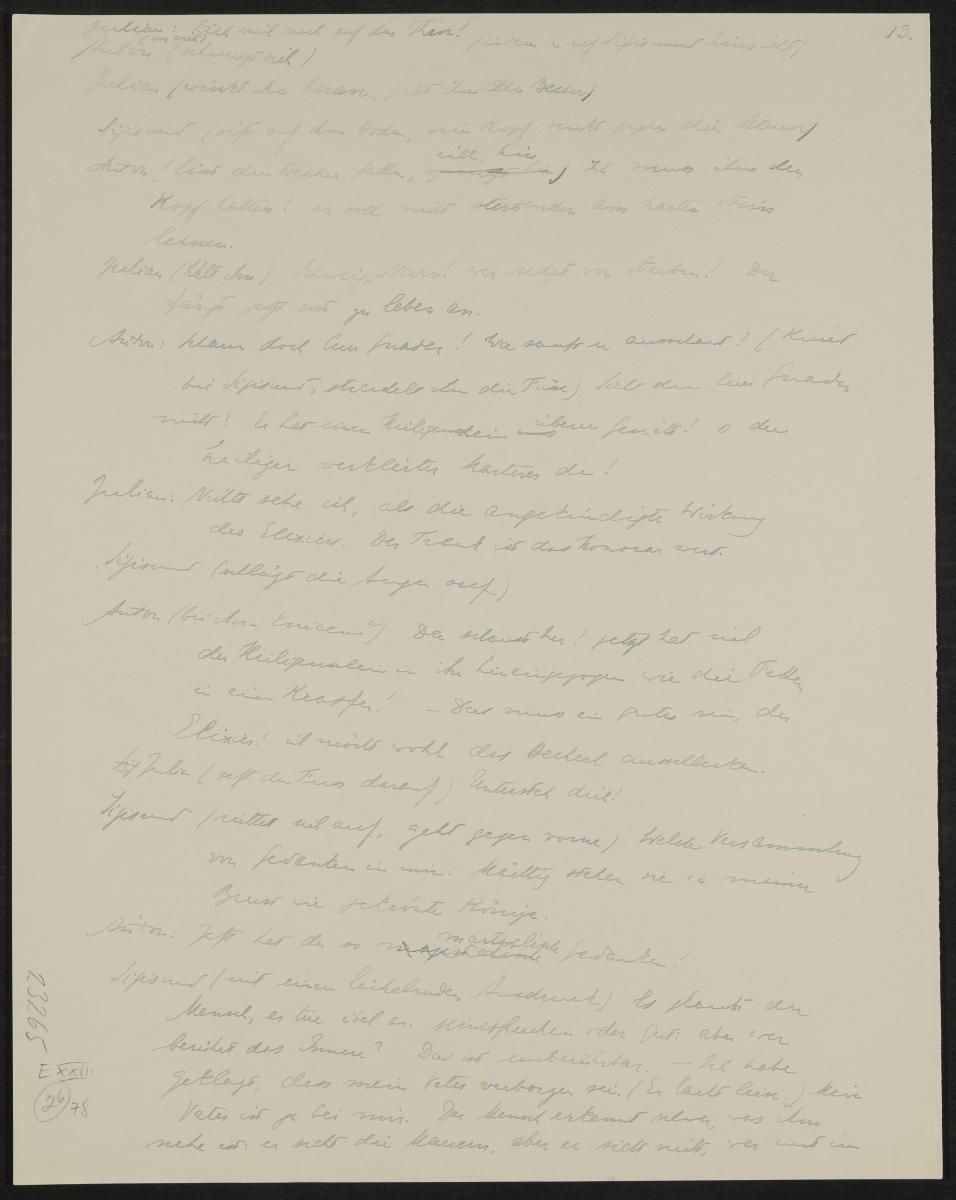 13.
Julian: Rück mich nach auf den Thron! (indem er auf Sigismund hinsieht)
Anton (schüttelt sich)
Julian (winkt ihn heran, gibt ihm den Becher)
Sigismund (sitzt auf dem Boden, sein Kopf sinkt gegen die Mauer)
will hin
Anton (lässt den Becher fallen, ) Ich muss ihm den
Kopf halten! er soll nicht sterbender am harten Stein
lehnen.
Julian (hält ihn) Schweig, Narr! wer redet von sterben! Der
fängt jetzt erst zu leben an.
Anton: schaun doch Euer Gnaden! Wie sanft er ausschaut! (Kniet
bei Sigismund, streichelt ihm die Füsse) Sieht denn Euer Gnaden
nichts? Er hat einen Heiligenschein überm Gesicht! o du
heiliger verklärter Martyrer du!
Julian: Nichts sehe ich, als die angekündigte Wirkung
des Elixiers. Der Trank ist das Honorar wert.
Sigismund (schlägt die Augen auf)
Anton (bei ihm knieend) Da schaust her! jetzt hat sich
der Heiligenschein in ihn hineingezogen wie die Fetten
in einen Krapfen! – Das muss ein gutes sein, das
Elixier! ich möcht wohl das Becherl ausschlecken.
Julian (setzt den Fuss darauf) Untersteh dich!
Sigismund (richtet sich auf, geht gegen vorne) Welche Versammlung
von Gedanken in mir. Mächtig stehen sie in meiner
Brust wie gekrönte Könige.
martialische
Anton: Jetzt hat der so Gedanken!
Sigismund (mit einem lächelnden Ausdruck) Es glaubt der
Mensch, er tue übel an seinesgleichen oder gut: aber wer
berührt das Innere? Das ist unberührbar. – Ich habe
geklagt, dass mein Vater verborgen sei. (Er lacht leise.) Mein
Vater ist ja bei mir. Der Mensch erkennt schwer, was ihm
nahe ist: er sieht die Mauern, aber er sieht nicht, wer mit im
23265
E XXIII
26
78